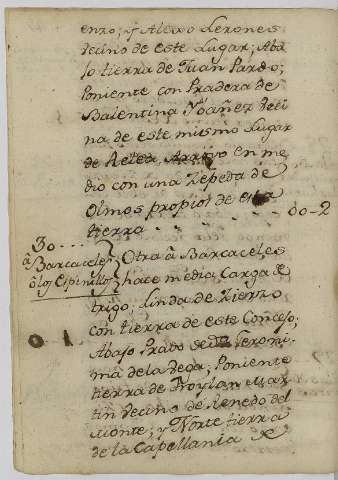 enzo; y Alexo Lerones
vecino de este Lugar; Aba
jo tierra de Juan Pardo;
Poniente con Pradera de
Balentina Ybañez veci
na de este mismo Lugar
de Arroyo en me
dio con una Zepeda de
Olmos propios de esta
tierra 00-2
30
à Barcaceles
ò los Espinillos
Otra à Barcaceles
hace media Carga de
trigo; Linda de Zierzo
con tierra de este Concejo;
Abajo Prado de Geroni
ma de la Vega; Poniente
tierra de Froylan Mar
tin vecino de Renedo del
Monte; y Norte tierra
de la Capellania de
0 1